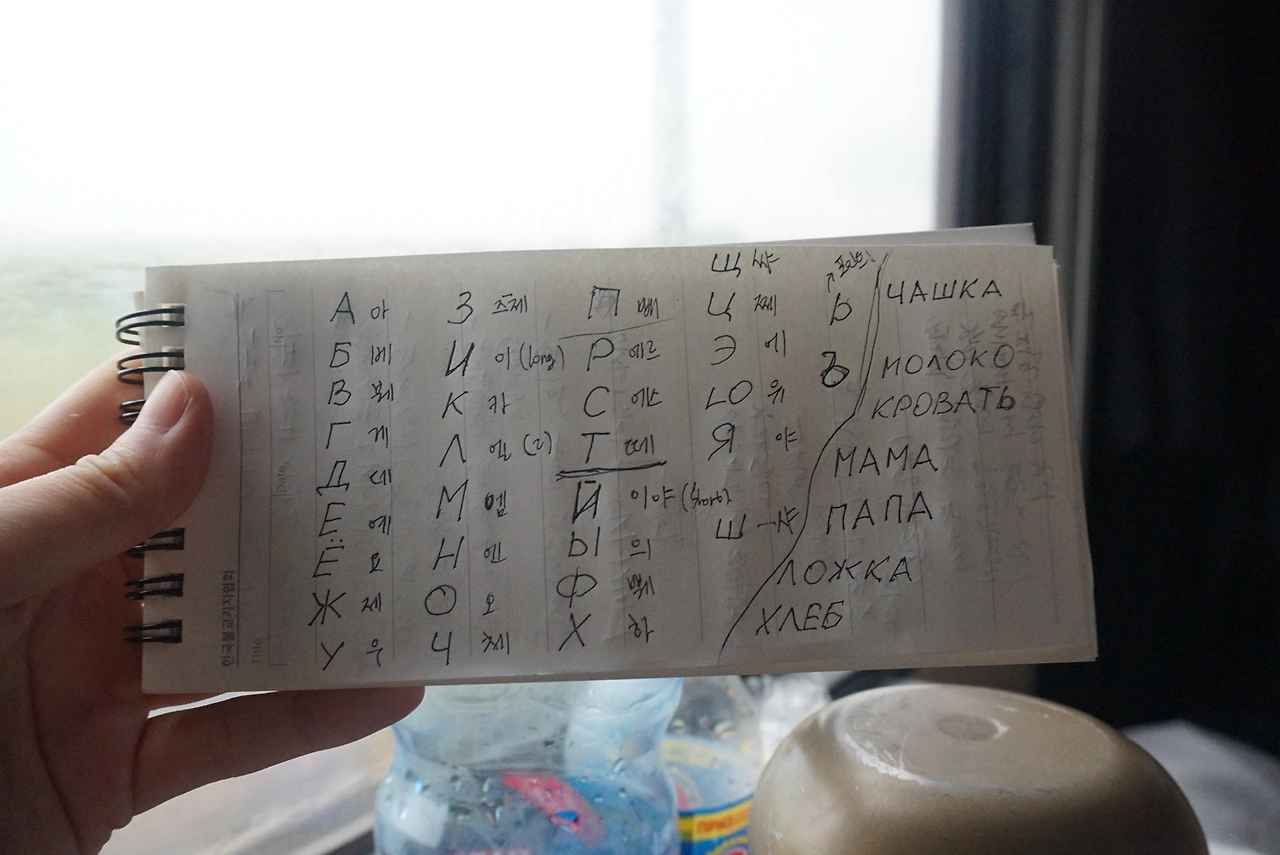 А 아
Б 베
В 붸
Г 게
Д 데
Е 예
Ё 요
Ж 제
У 우
З 즈제
И 이 (long)
К 카
Л 엘 (ㄹ)
М 엠
Н 엔
О 오
Ч 체
П 뻬
Р 에르
С 에스
Т 떼
Й 이야 (short)
Ы 의
Ф 
Х 하
Щ 샤
Ц 쩨
Э 에
Ю 유
Я 야
Ш 샤
Ь
Ъ
ЧАШКА
МОЛОКО
КРОВАТЬ
МАМА
ПАПА
ЛОЖКА
ХЛЕБ
No.
Date.
Title
한국불교기자협회